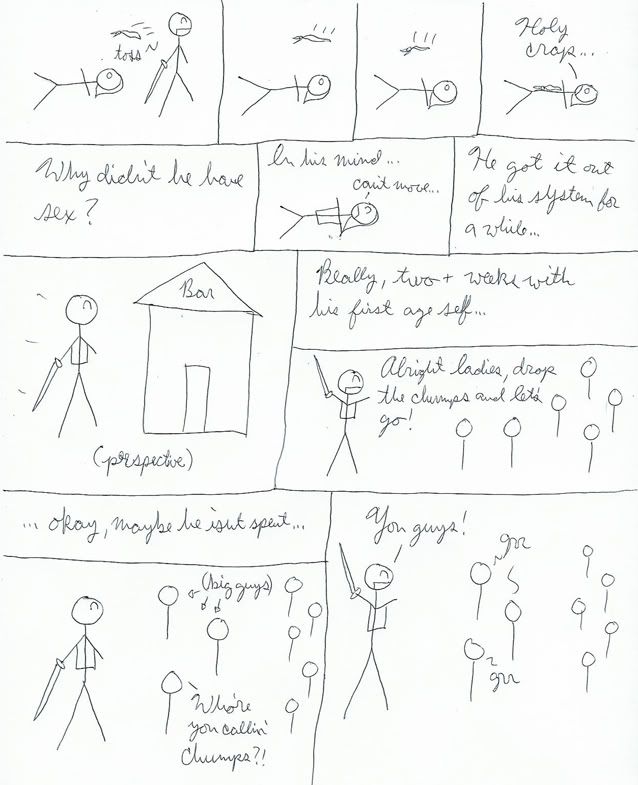 toss
Holy
crap...
Why didn't he have
sex?
In his mind...
can't move...
He got it out
of his system for
a while...
Bar
(perspective)
Really, two + weeks with
his first age self...
Alright ladies, drop
the chumps and let's
go!
... okay, maybe he isn't spent...
(big guys)
Who're
you callin'
Chumps?!
You guys!
grr
grr